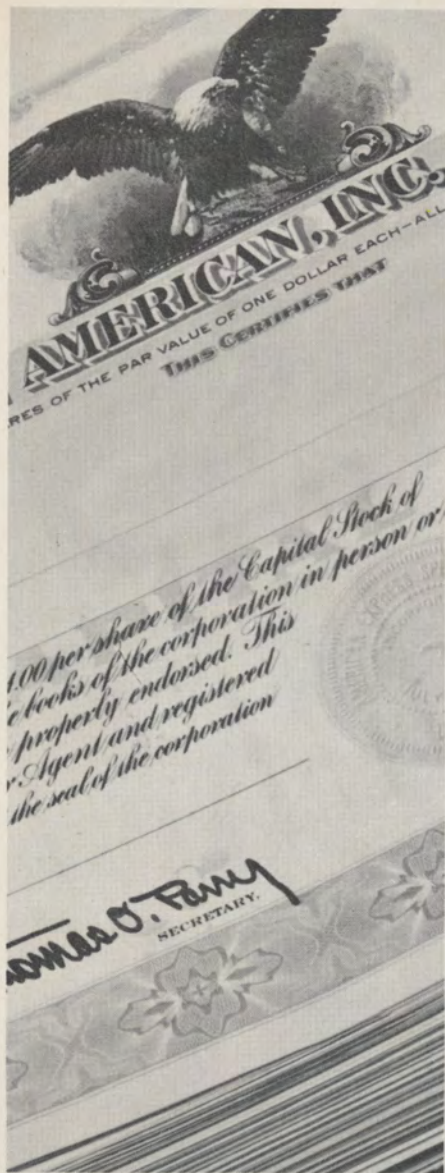 AMERICAN, INC.
RES OF THE PAR VALUE OF ONE DOLLAR EACH—ALL
THIS CERTIFIES THAT
1.00 per share of the Capital Stock of
books of the corporation in person or
properly endorsed. This
Agent and registered
the seal of the corporation
omas O. Parry
SECRETARY.
AMERICAN EXPRESS